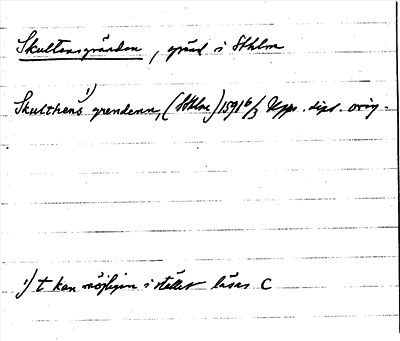 Skultansgränden, gränd i Sthlm
Skulthens¹⁾ grendenn, (Sthlm) 1591 6/3 Upps. dipl. orig.
1) t kan möjligen i stället läsas C